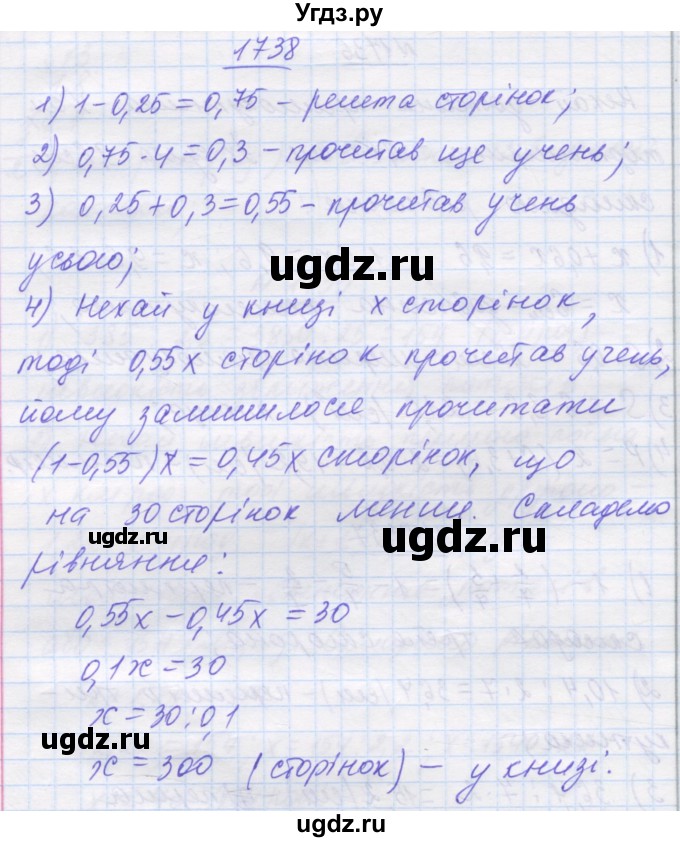 Угдз.ру
1738
1) 1-0,25=0,75 - решта сторінок;
2) 0,75·4=0,3 - прочитав ще учень;
3) 0,25+0,3=0,55 - прочитав учень
усього;
ugdz.ru
4) Нехай у книзі х сторінок,
тоді 0,55х сторінок прочитав учень,
йому залишилося прочитати
(1-0,55)х=0,45х сторінок, що
на 30 сторінок менше. Складемо
ugdz.ru ugdz.ru
рівняння:
0,55х-0,45х=30
0,1х=30
х=30:0,1
ugdz.ru
х=300 (сторінок) - у книзі.
ugdz.ru